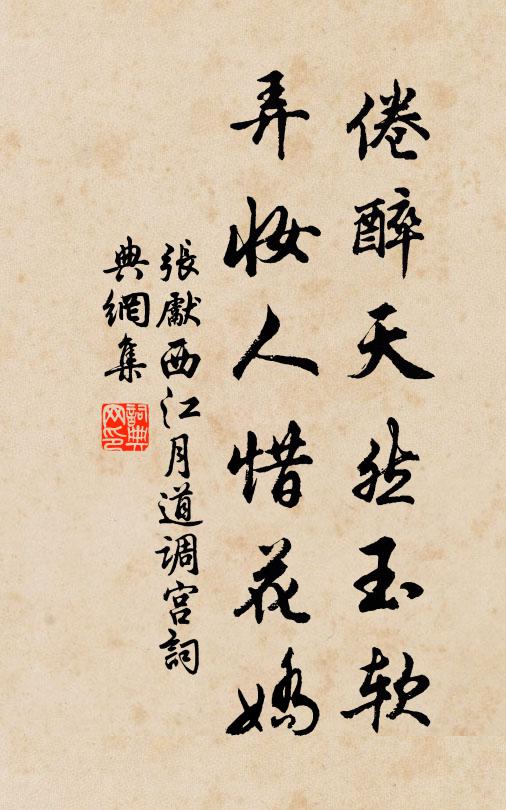 倦醉天然玉软
弄妆人惜花娇
張獻西江月道調宮詞
典網集
詞典网印